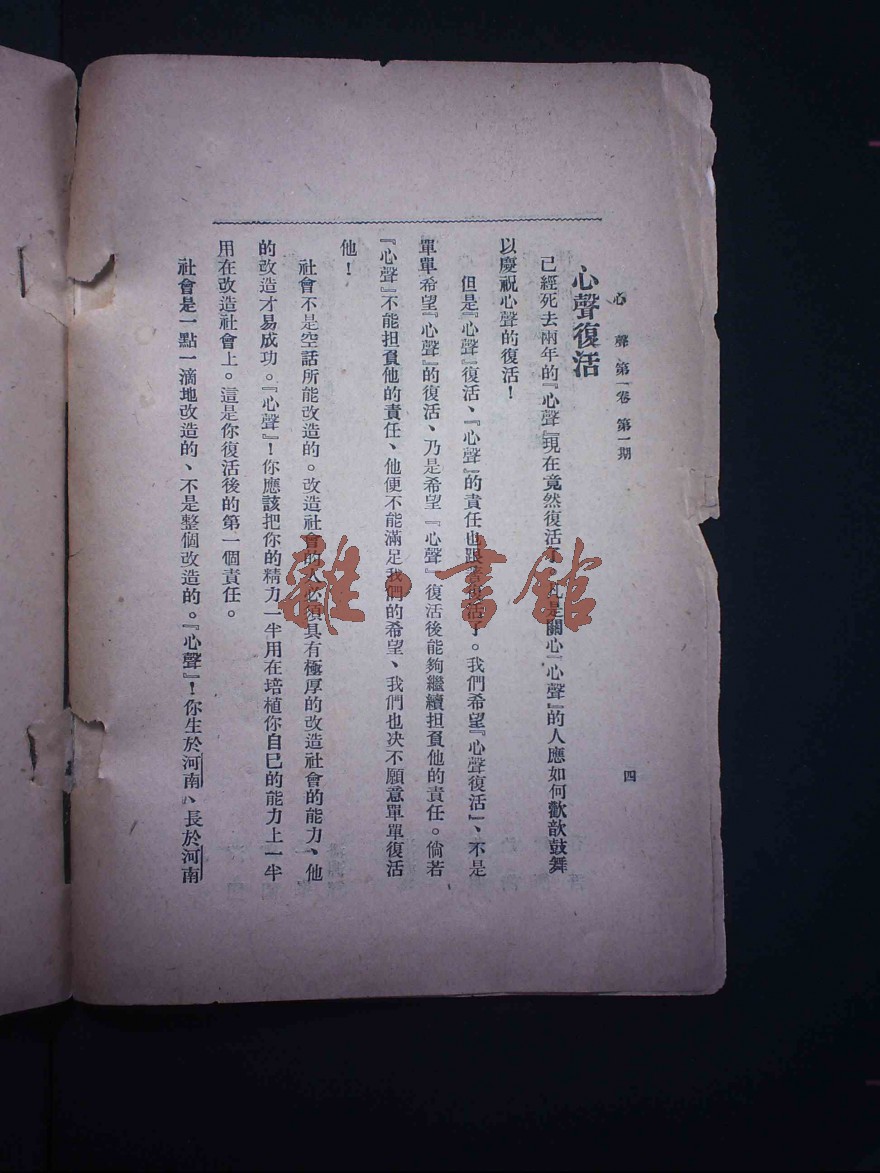 心聲 第一卷 第一期
四
心聲復活
已經死去兩年的『心聲』現在竟然復活了。凡是關心『心聲』的人應如何歡歆鼓舞
以慶祝心聲的復活！
但是『心聲』復活、『心聲』的責任也跟著復活了。我們希望『心聲復活』、不是
單單希望『心聲』的復活、乃是希望『心聲』復活後能夠繼續担負他的責任。倘若
『心聲』不能担負他的責任、他便不能滿足我們的希望、我們也决不願意單單復活
他！
社會不是空話所能改造的。改造社會的人必須具有極厚的改造社會的能力、他
的改造才易成功。『心聲』！你應該把你的精力一半用在培植你自已的能力上一半
用在改造社會上。這是你復活後的第一個責任。
社會是一點一滴地改造的、不是整個改造的。『心聲』！你生於河南、長於河南
雜·書館